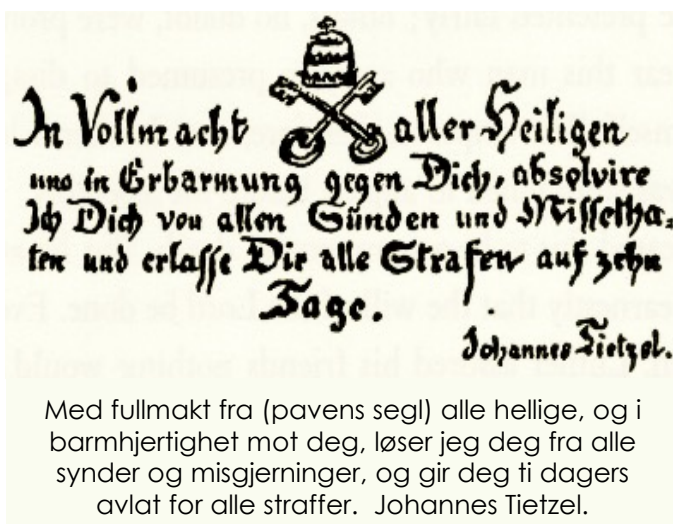 In Vollmacht aller Heiligen
und in Erbarmung gegen Dich, absolvire
Ich Dich von allen Sünden und Missetha=
ten und erlasse Dir alle Strafen auf zehn
Tage.
Johannes Tietzel.
Med fullmakt fra (pavens segl) alle hellige, og i
barmhjertighet mot deg, løser jeg deg fra alle
synder og misgjerninger, og gir deg ti dagers
avlat for alle straffer. Johannes Tietzel.